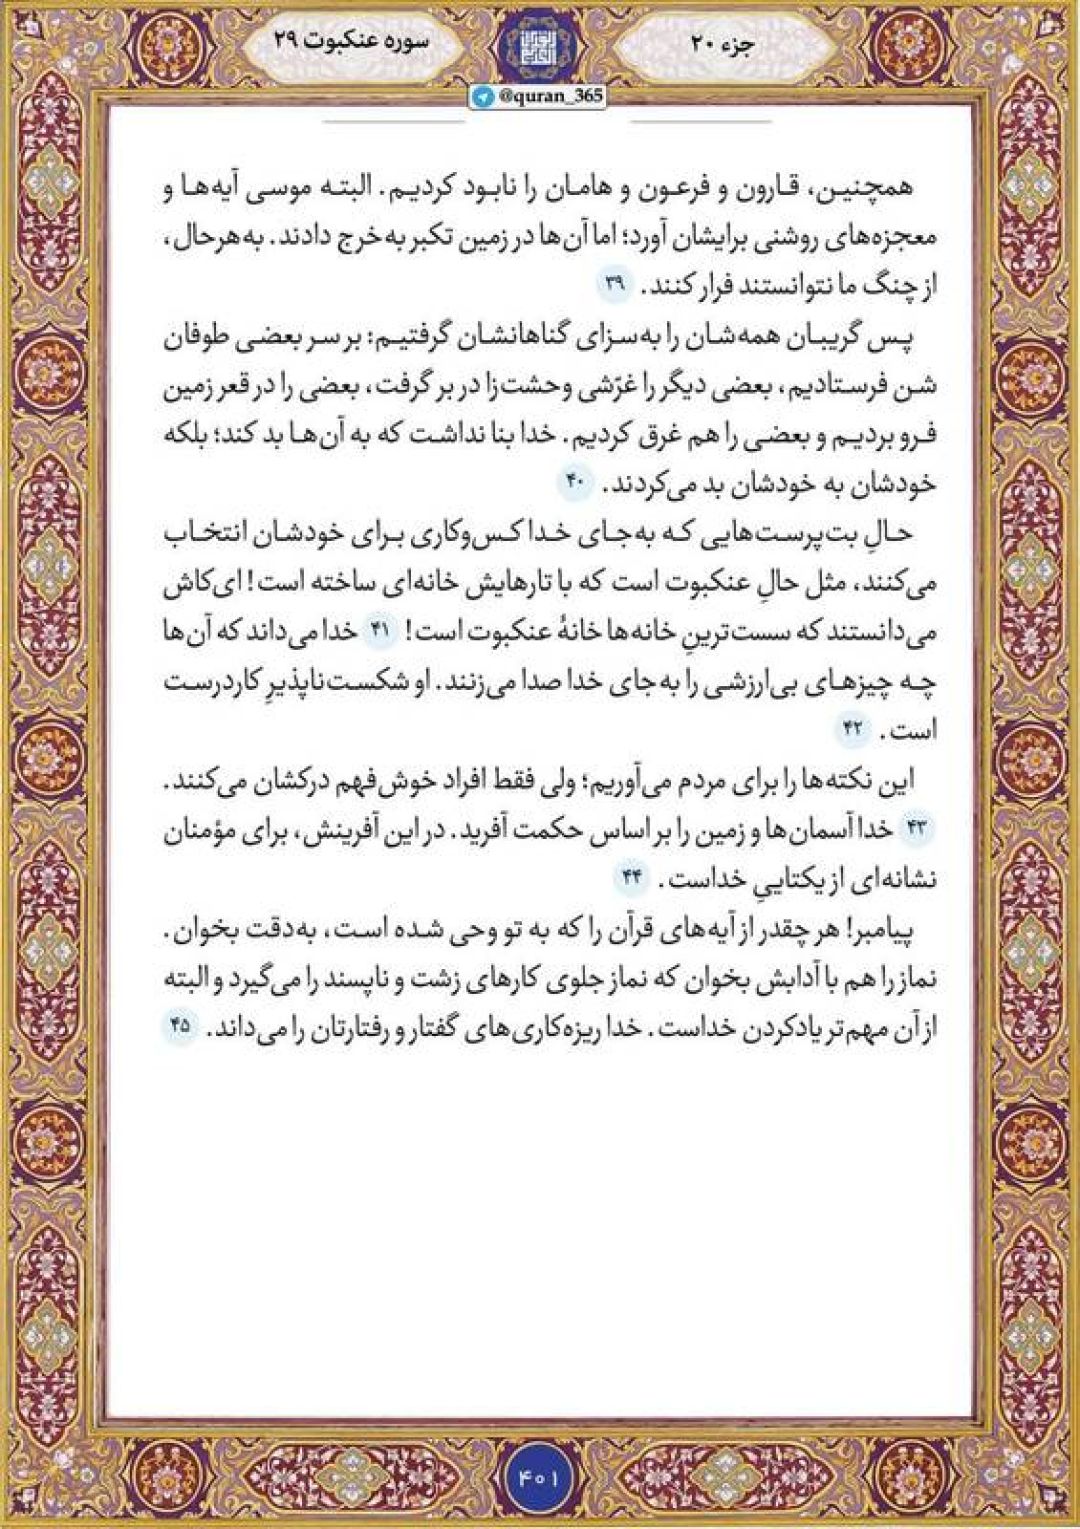 جزء ۲۰
سوره عنکبوت ۲۹
@quran_365
همچنین، قارون و فرعون و هامان را نابود کردیم. البته موسی آیه‌ها و
معجزه‌های روشنی برایشان آورد؛ اما آن‌ها در زمین تکبر به‌خرج دادند. به‌هرحال،
از چنگ ما نتوانستند فرار کنند. ۳۹
پس گریبان همه‌شان را به‌سزای گناهانشان گرفتیم: بر سر بعضی طوفان
شن فرستادیم، بعضی دیگر را غرّشی وحشت‌زا در بر گرفت، بعضی را در قعر زمین
فرو بردیم و بعضی را هم غرق کردیم. خدا بنا نداشت که به آن‌ها بد کند؛ بلکه
خودشان به خودشان بد می‌کردند. ۴۰
حالِ بت‌پرست‌هایی که به‌جای خدا کس‌وکاری برای خودشان انتخاب
می‌کنند، مثل حالِ عنکبوت است که با تارهایش خانه‌ای ساخته است! ای‌کاش
می‌دانستند که سست‌ترینِ خانه‌ها خانهٔ عنکبوت است! ۴۱ خدا می‌داند که آن‌ها
چه چیزهای بی‌ارزشی را به‌جای خدا صدا می‌زنند. او شکست‌ناپذیرِ کاردرست
است. ۴۲
این نکته‌ها را برای مردم می‌آوریم؛ ولی فقط افراد خوش‌فهم درکشان می‌کنند.
۴۳ خدا آسمان‌ها و زمین را بر اساس حکمت آفرید. در این آفرینش، برای مؤمنان
نشانه‌ای از یکتاییِ خداست. ۴۴
پیامبر! هر چقدر از آیه‌های قرآن را که به تو وحی شده است، به‌دقت بخوان.
نماز را هم با آدابش بخوان که نماز جلوی کارهای زشت و ناپسند را می‌گیرد و البته
از آن مهم‌تر یادکردن خداست. خدا ریزه‌کاری‌های گفتار و رفتارتان را می‌داند. ۴۵
۴۰۱